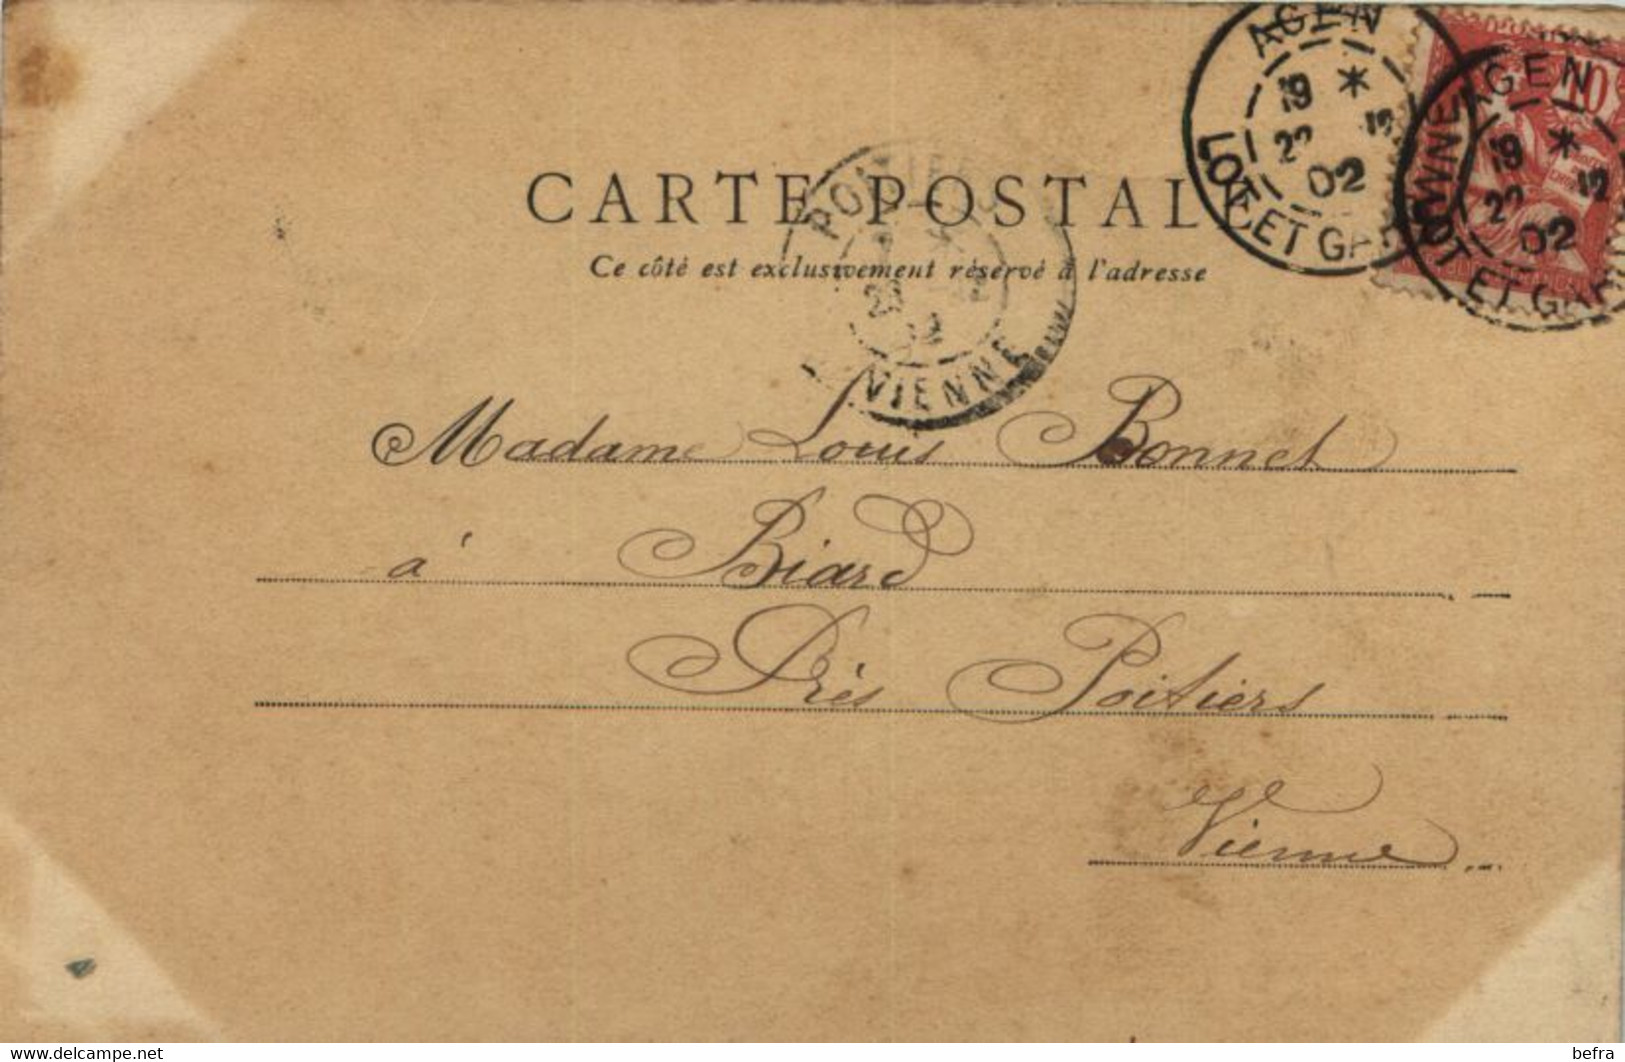 AGEN
19 *
22 12
02
LOT ET GAR
AGEN
19 *
22 12
02
LOT ET GAR
10
CARTE POSTALE
Ce côté est exclusivement réservé à l'adresse
POITIERS
02
VIENNE
Madame Louis Bonnet
à Biard
Près Poitiers
Vienne
www.delcampe.net
befra